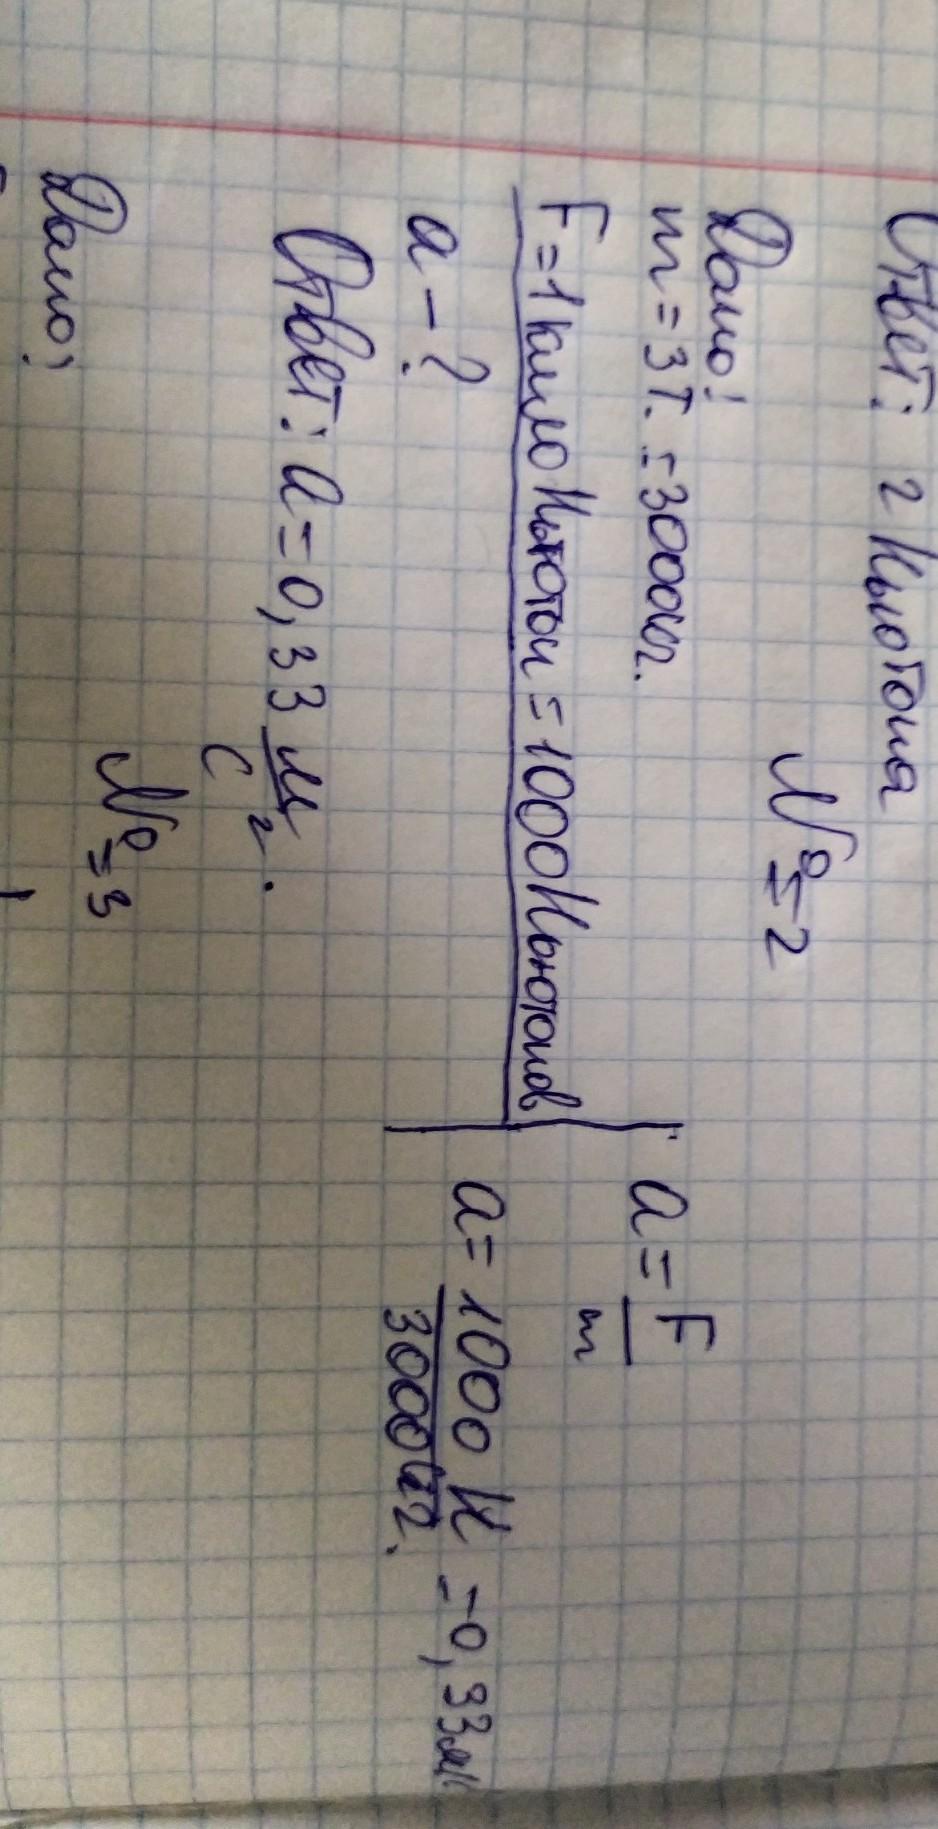 Ответ: 2 Ньютона
№2
Дано:
m = 3т. = 3000кг.
F = 1 кило Ньютон = 1000 Ньютонов
a - ?
a = F/m
a = 1000 Н/3000 кг. = 0,33 м/
Ответ: a = 0,33 м/с².
№3
Дано: